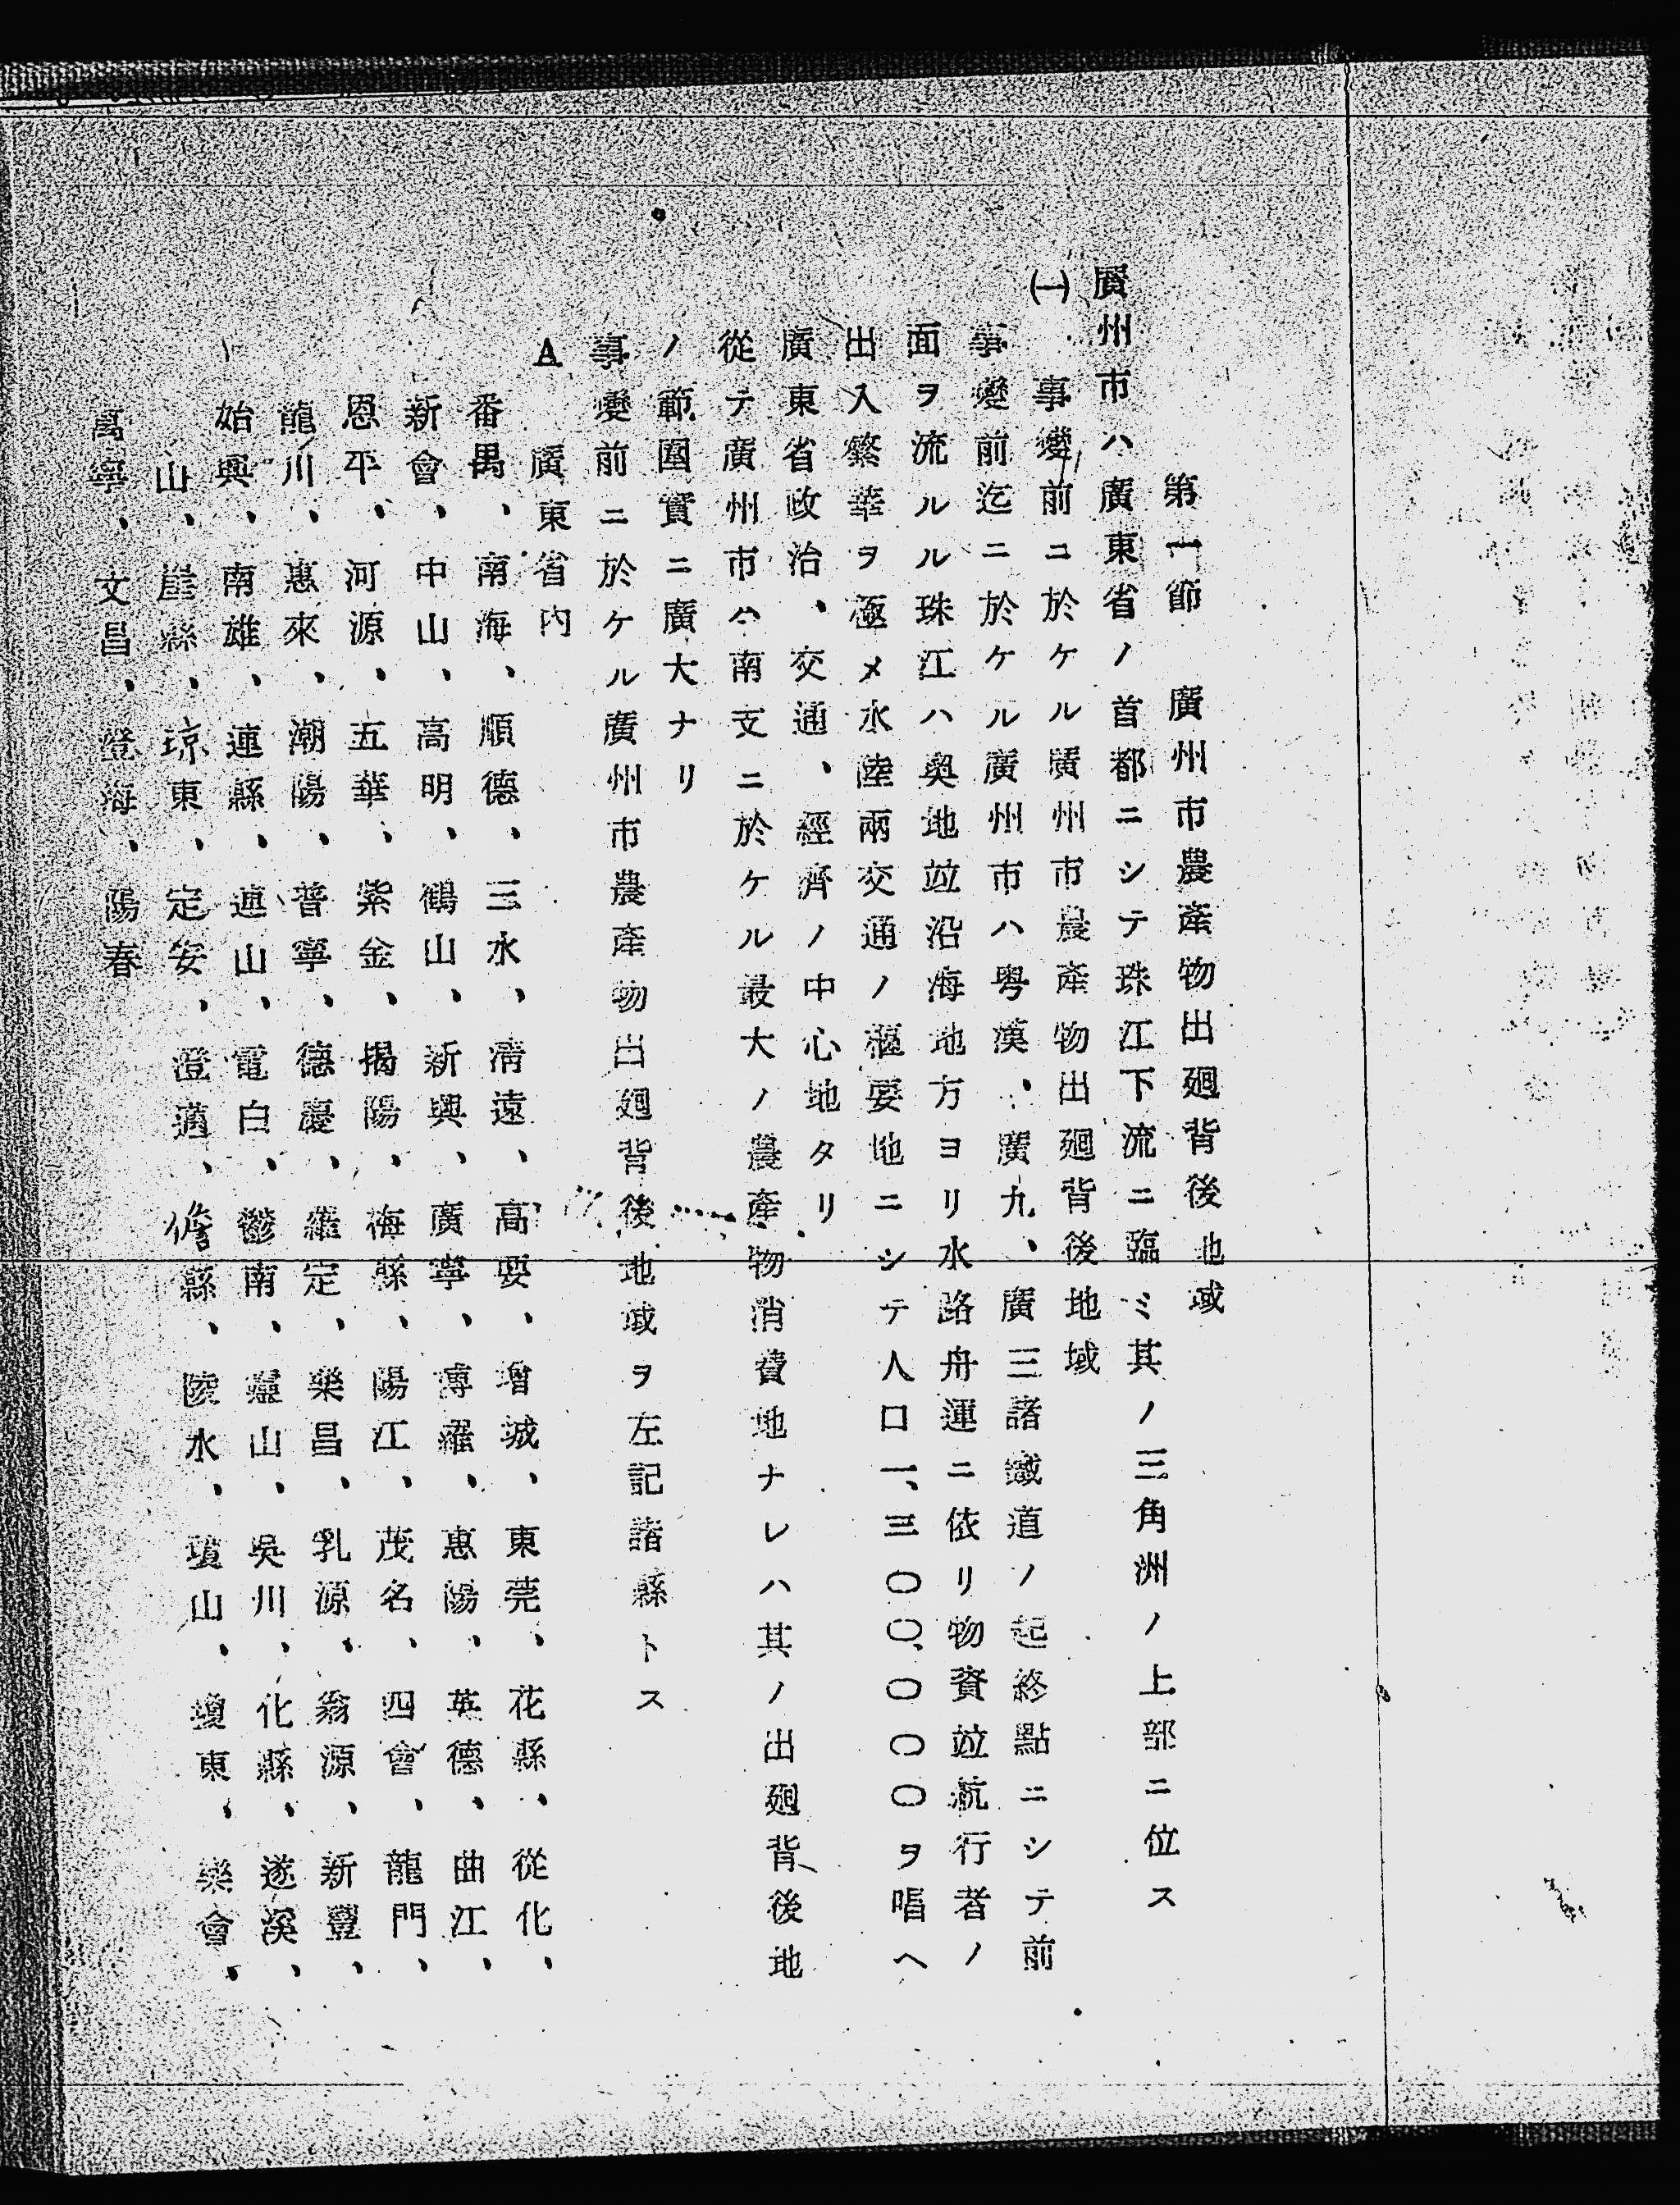 第一節　廣州市農產物出廻背後地域
廣州市ハ廣東省ノ首都ニシテ珠江下流ニ臨ミ其ノ三角洲ノ上部ニ位ス
㈠　事變前ニ於ケル廣州市農產物出廻背後地域
事變前迄ニ於ケル廣州市ハ粤漢、廣九、廣三諸鐵道ノ起終點ニシテ前
面ヲ流ルル珠江ハ奧地竝沿海地方ヨリ水路舟運ニ依リ物資竝航行者ノ
出入繁華ヲ極メ水陸兩交通ノ樞要地ニシテ人口一、三〇〇、〇〇〇ヲ唱ヘ
廣東省政治、交通、經濟ノ中心地タリ
從テ廣州市ハ南支ニ於ケル最大ノ農產物消費地ナレハ其ノ出廻背後地
ノ範圍實ニ廣大ナリ
事變前ニ於ケル廣州市農產物出廻背後地域ヲ左記諸縣トス
A　廣東省內
番禺、南海、順德、三水、淸遠、高要、增城、東莞、花縣、從化、
新會、中山、高明、鶴山、新興、廣寧、博羅、惠陽、英德、曲江、
恩平、河源、五華、紫金、揭陽、梅縣、陽江、茂名、四會、龍門、
龍川、惠來、潮陽、普寧、德慶、羅定、樂昌、乳源、翁源、新豐、
始興、南雄、連縣、連山、電白、鬱南、靈山、吳川、化縣、遂溪、
山、崖縣、琼東、定安、澄邁、儋縣、陵水、瓊山、瓊東、樂會、
萬寧、文昌、澄海、陽春